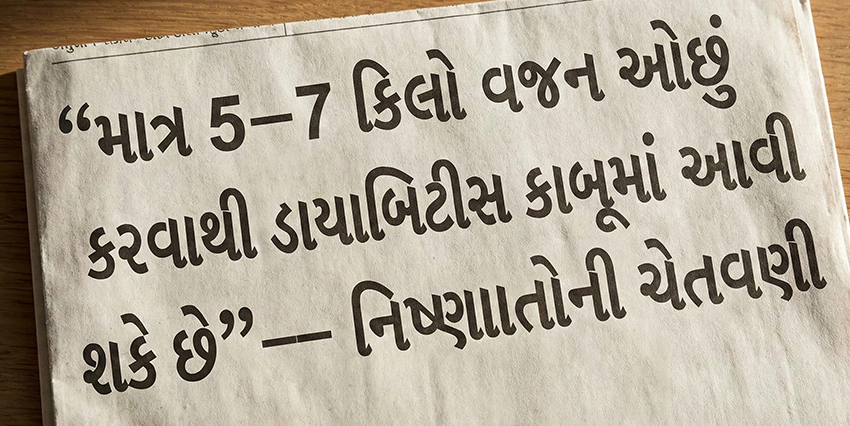 “માત્ર 5–7 કિલો વજન ઓછું
કરવાથી ડાયાબિટીસ કાબૂમાં આવી
શકે છે” — નિષ્ણાાતોની ચેતવણી